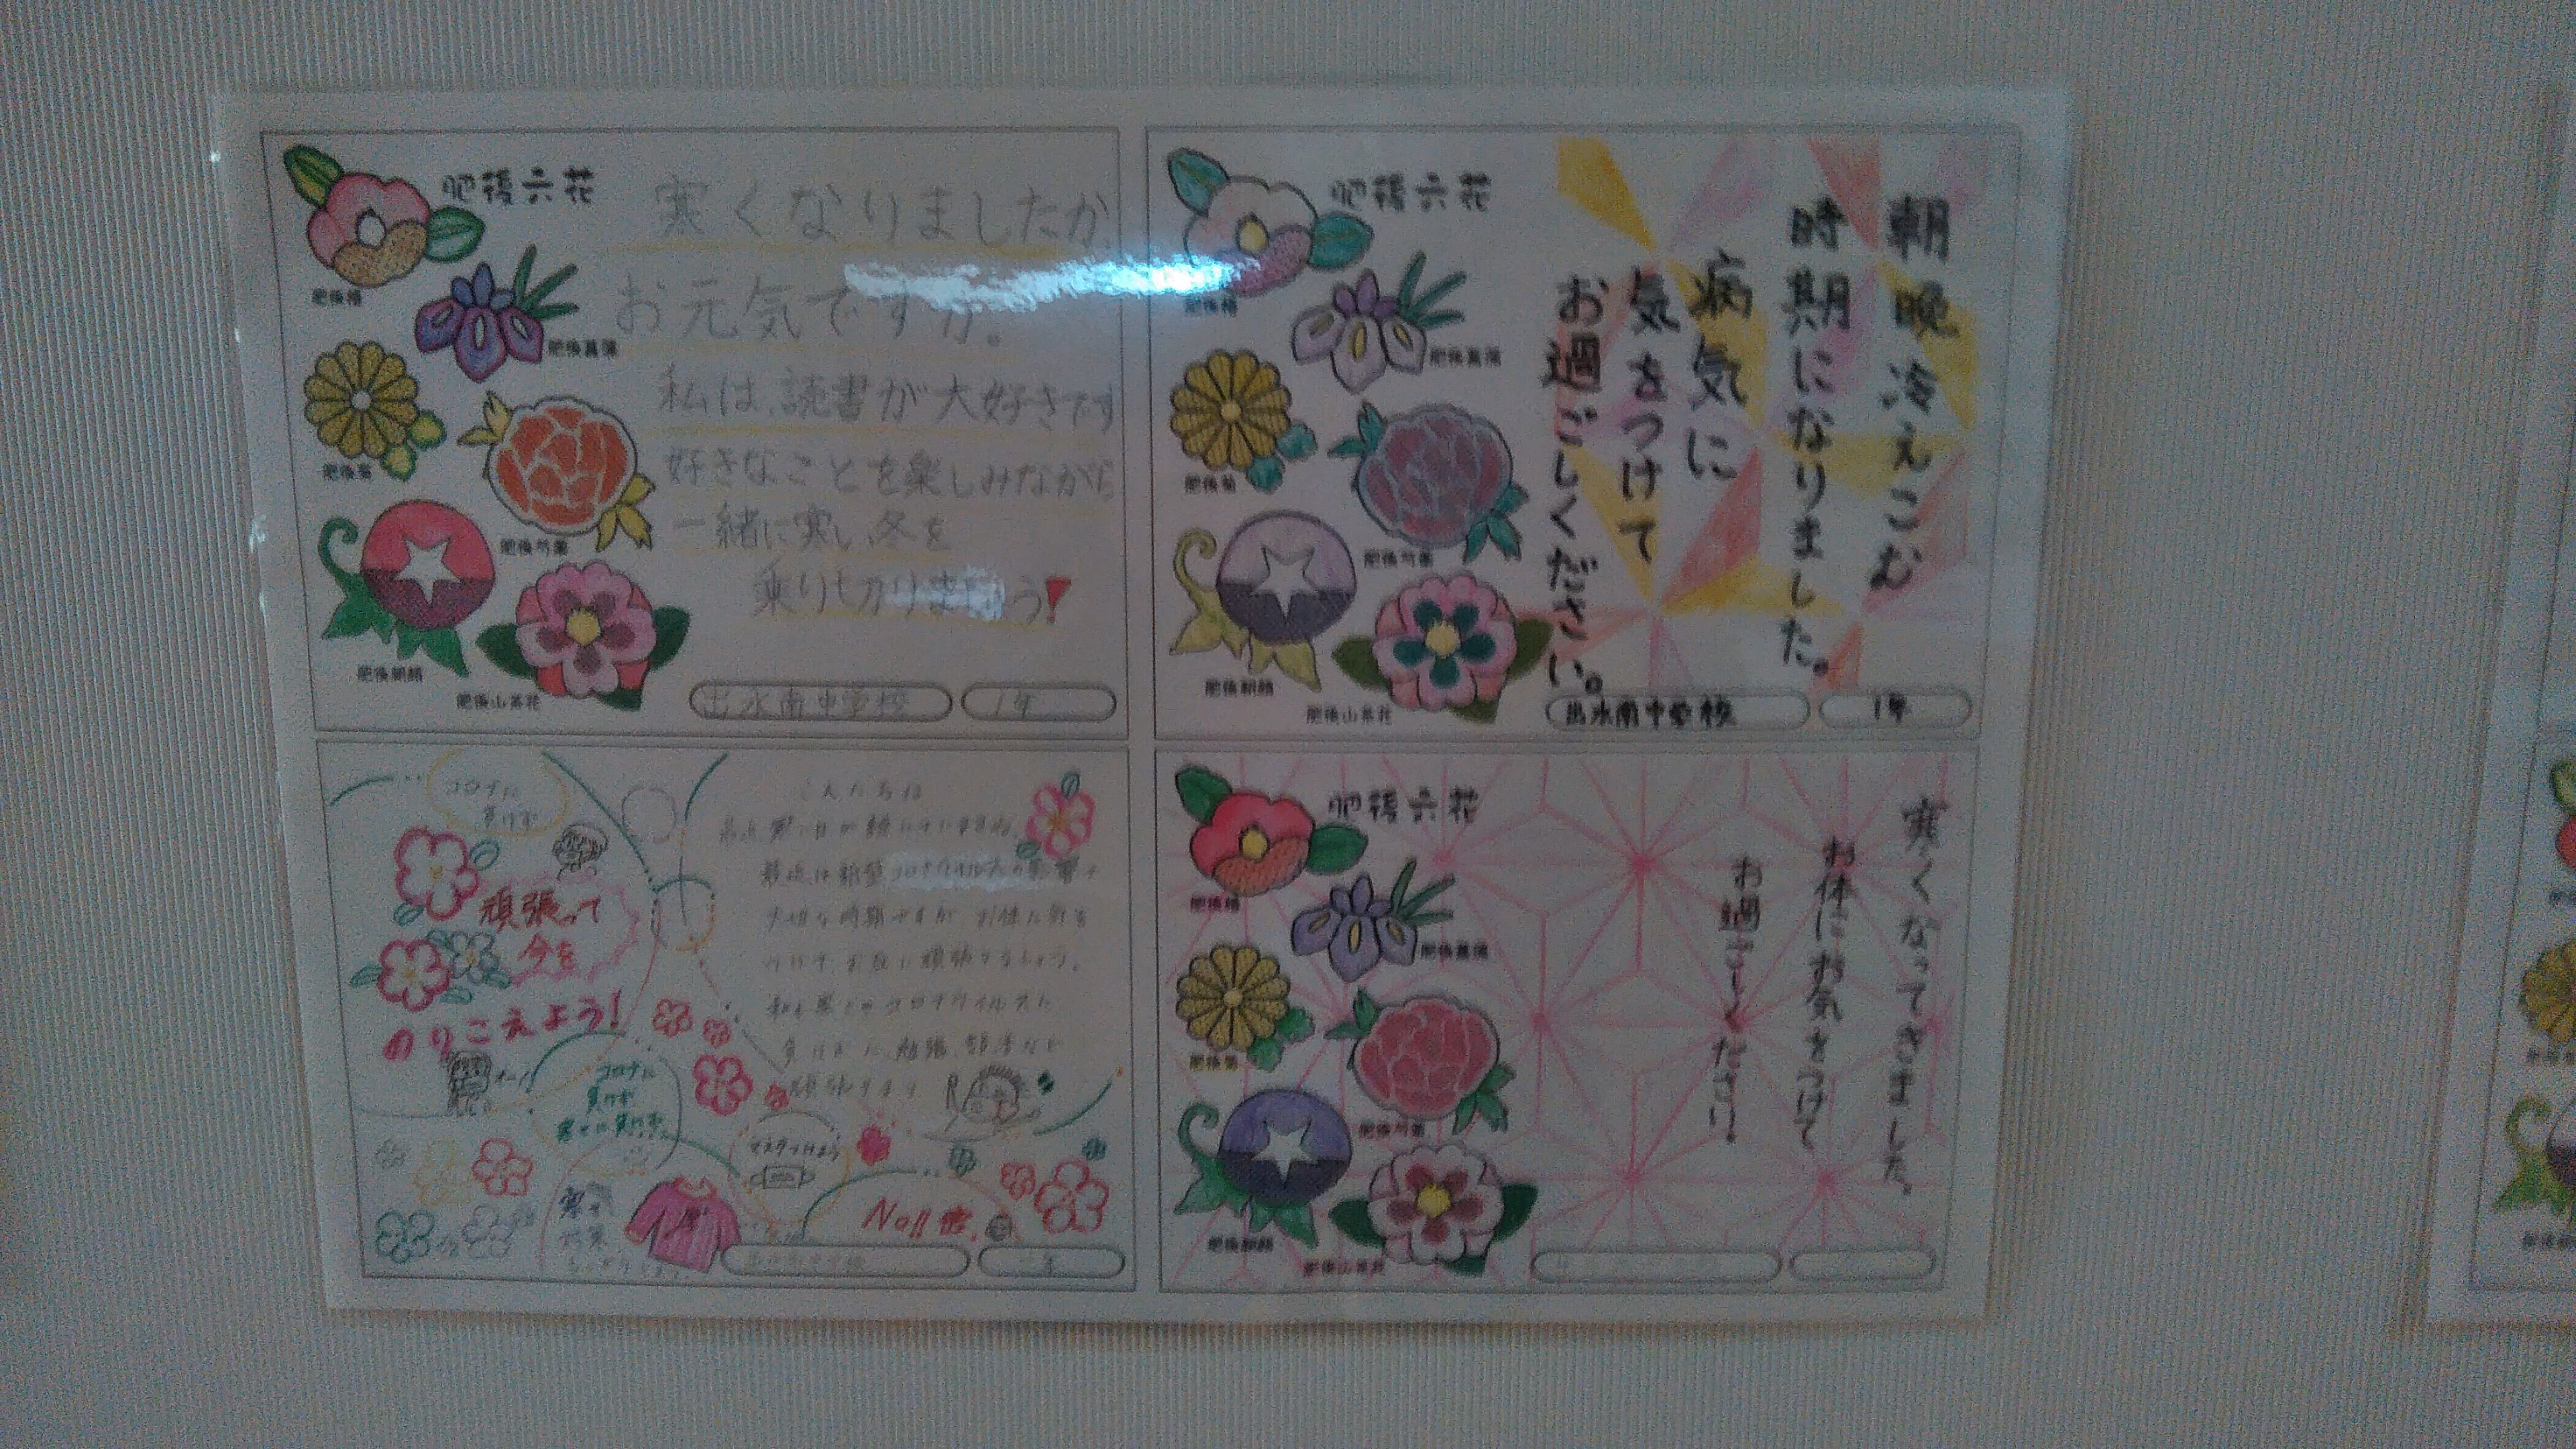 肥後六花
肥後椿
肥後菖蒲
肥後菊
肥後芍薬
肥後朝顔
肥後山茶花
寒くなりましたが、
お元気ですか。
私は、読書が大好きです
好きなことを楽しみながら
一緒に寒い冬を
乗りきりましょう!
出水南中学校
1年
肥後六花
肥後椿
肥後菖蒲
肥後菊
肥後芍薬
肥後朝顔
肥後山茶花
朝晩冷えこむ
時期になりました。
病気に
気をつけて
お過ごしください。
出水南中学校
1年
コロナに
負けず
頑張って
今を
のりこえよう!
こんにちは
最近は新型コロナウイルスの影響で
大切な時期ですが、お体に気を
付けて、お互い頑張りましょう。
コロナに
負けず
寒さに負けず
マスクつけよう
肥後六花
肥後椿
肥後菖蒲
肥後菊
肥後芍薬
肥後朝顔
肥後山茶花
寒くなってきました。
お体にお気をつけて
お過ごしください。